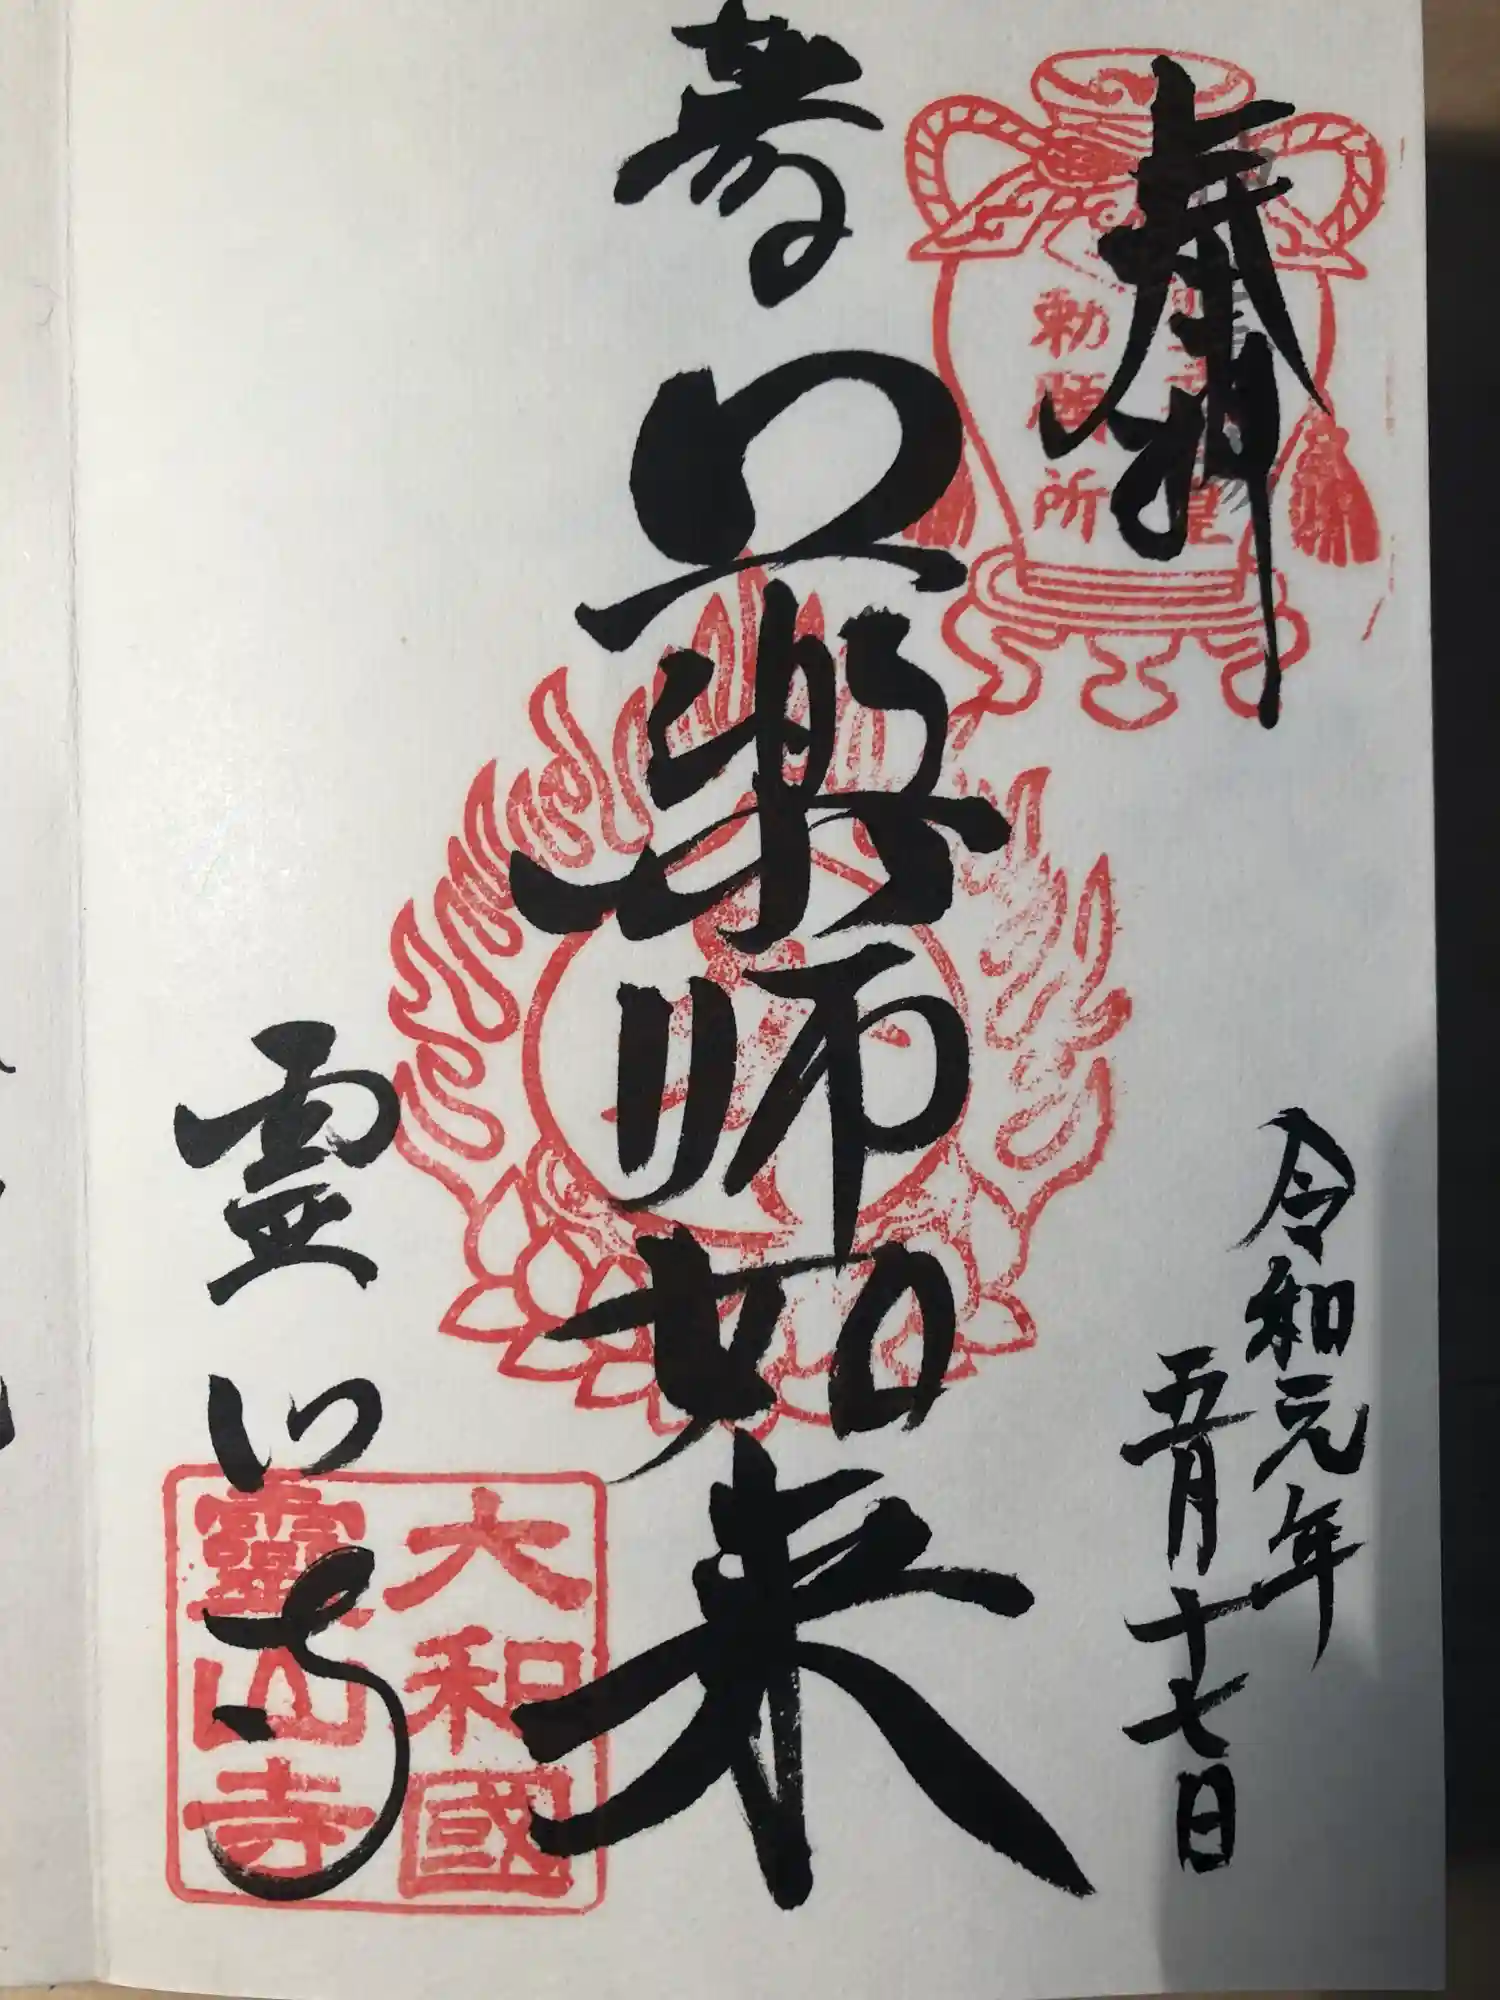 奉拝
勅願所
令和元年
五月十七日
薬師如来
霊山寺
大和國
靈山寺